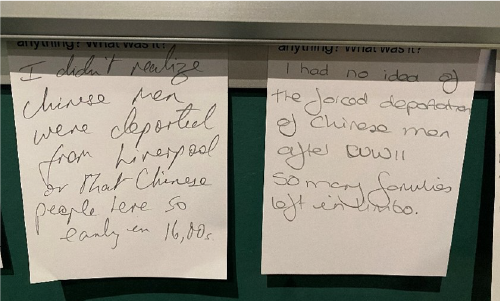 anything? What was it?
I didn't realize
Chinese men
were deported
from Liverpool
or that Chinese
people here so
early in 16,00s
anything? What was it?
I had no idea of
the forced deportation
of Chinese men
after WWII
so many families
left in limbo.